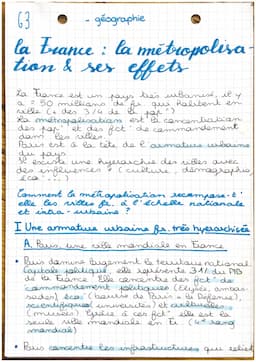 G3 - géographie
La France : la métropolisa-
tion & ses effets
La France est un pays très urbanisé, il y
a ≈ 50 millions de fr qui habitent en
ville (≈ des 3/4 de la pop°)
La métropolisation est la concentration
des pop° et des fct° de commandement
dans les villes
Paris est à la tête de l'armature urbaine
du pays
Il existe une hyerarchie des villes avec
des influences ≠ (culture, démographie,
éco...)
Comment la métropolisation recompose-t-
elle les villes fr. à l'échelle nationale
et intra-urbaine ?
I Une armature urbaine fr. très hyerarchisée
A. Paris, une ville mondiale en France
• Paris domine largement le territoire national.
Capitale politique, elle représente 31% du PIB
de la France. Elle concentre des fct° de
commandement politiques (Elysée, ambas-
sades) éco (bourse de Paris, La Défense),
scientifiques (universités) et culturelles
(musées). Grâce à ces fct° elle est la
seule ville mondiale en Fr.
mondial)
• Paris concentre les infrastructures qui